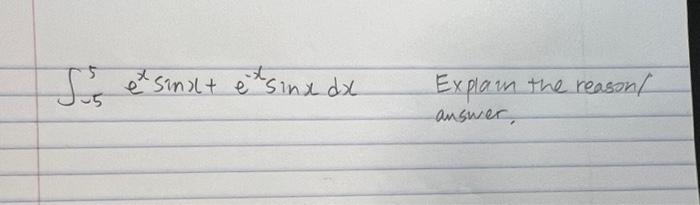 ∫₋₅⁵ eˣ sinx + e⁻ˣ sinx dx
Explain the reason/
answer.